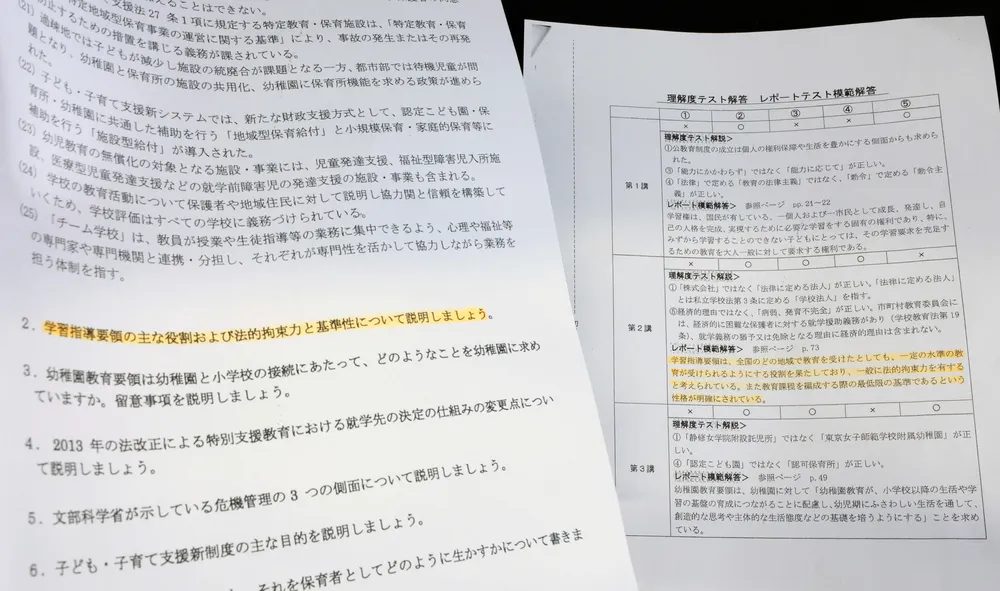 えることはできない。
支援法27条1項に規定する特定教育・保育施設は、「特定教育・保育
特定地域型保育事業の運営に関する基準」により、事故の発生またはその再発
防止するための措置を講じる義務が課されている。
(21) 過疎地では子どもが減少し施設の統廃合が課題となる一方、都市部では待機児童が問
題となり、幼稚園と保育所の施設の共用化、幼稚園に保育所機能を求める政策が進めら
れた。
(22) 子ども・子育て支援新システムでは、新たな財政支援方式として、認定こども園・保
育所・幼稚園に共通した補助を行う「地域型保育給付」と小規模保育・家庭的保育等に
補助を行う「施設型給付」が導入された。
(23) 幼児教育の無償化の対象となる施設・事業には、児童発達支援、福祉型障害児入所施
設、医療型児童発達支援などの就学前障害児の発達支援の施設・事業も含まれる。
(24) 学校の教育活動について保護者や地域住民に対して説明し協力関と信頼を構築して
いくため、学校評価はすべての学校に義務づけられている。
(25) 「チーム学校」は、教員が授業や生徒指導等の業務に集中できるよう、心理や福祉等
の専門家や専門機関と連携・分担し、それぞれが専門性を活かして協力しながら業務を
担う体制を指す。
2. 学習指導要領の主な役割および法的拘束力と基準性について説明しましょう。
3. 幼稚園教育要領は幼稚園と小学校の接続にあたって、どのようなことを幼稚園に求め
ていますか。留意事項を説明しましょう。
4. 2013 年の法改正による特別支援教育における就学先の決定の仕組みの変更点につい
て説明しましょう。
5. 文部科学省が示している危機管理の 3 つの側面について説明しましょう。
6. 子ども・子育て支援新制度の主な目的を説明しましょう。
それを保育者としてどのように生かすかについて書きま
理解度テスト解答 レポートテスト模範解答
① ② ③ ④ ⑤
第1講
× ○ × × ○
理解度テスト解説>
①公教育制度の成立は個人の権利保障や生活を豊かにする側面からも求めら
れた。
③「能力にかかわらず」ではなく「能力に応じて」が正しい。
④「法律」で定める「教育の法律主義」ではなく、「勅令」で定める「勅令主
義」が正しい。
レポート模範解答> 参照ページ pp.21～22
学習権は、国民が有している、一個人および一市民として成長、発達し、自
己の人格を完成、実現するために必要な学習をする固有の権利であり、特に、
みずから学習することのできない子どもにとっては、その学習要求を充足す
るための教育を大人一般に対して要求する権利である。
第2講
× ○ ○ ○ ×
理解度テスト解説>
①「株式会社」ではなく「法律に定める法人」が正しい。「法律に定める法人」
とは私立学校法第3条に定める「学校法人」を指す。
⑤経済的理由ではなく、「病弱、発育不完全」が正しい。市町村教育委員会に
は、経済的に困難な保護者に対する就学援助義務があり(学校教育法第19
条)、就学義務の猶予又は免除となる理由に経済的理由は含まれない。
レポート模範解答> 参照ページ p.73
学習指導要領は、全国のどの地域で教育を受けたとしても、一定の水準の教
育が受けられるようにする役割を果たしており、一般に法的拘束力を有する
と考えられている。また教育課程を編成する際の最低限の基準であるという
性格が明確にされている。
第3講
× ○ ○ × ○
理解度テスト解説>
①「静修女学院附設託児所」ではなく「東京女子師範学校附属幼稚園」が正し
い。
④「認定こども園」ではなく「認可保育所」が正しい。
レポート模範解答> 参照ページ p.49
幼稚園教育要領は、幼稚園に対して「幼稚園教育が、小学校以降の生活や学
習の基盤の育成につながることに配慮し、幼児期にふさわしい生活を通して、
創造的な思考や主体的な生活態度などの基礎を培うようにする」ことを求め
ている。